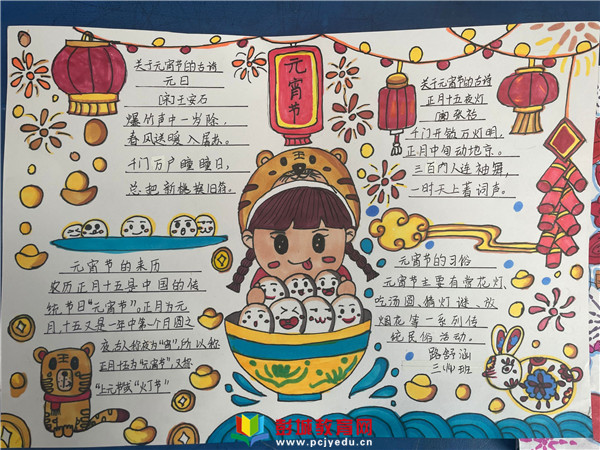 关于元宵节的古诗
元日
[宋]王安石
爆竹声中一岁除,
春风送暖入屠苏。
千门万户曈曈日,
总把新桃换旧符。
元宵节
关于元宵节的古诗
正月十五夜灯
张祜
千门开锁万灯明,
正月中旬动地京。
三百内人连袖舞,
一时天上著词声。
元宵节的来历
农历正月十五是中国的传
统节日“元宵节”。正月为元
月,十五又是一年中第一个月圆之
夜,古人称夜为“宵”,所以称
正月十五为“元宵节”,又称
“上元节”或“灯节”
元宵节的习俗
元宵节主要有赏花灯,
吃汤圆、猜灯谜、放
烟花等一系列传
统民俗活动。
路舒涵
三班
教育网
www.pcjyedu.cn